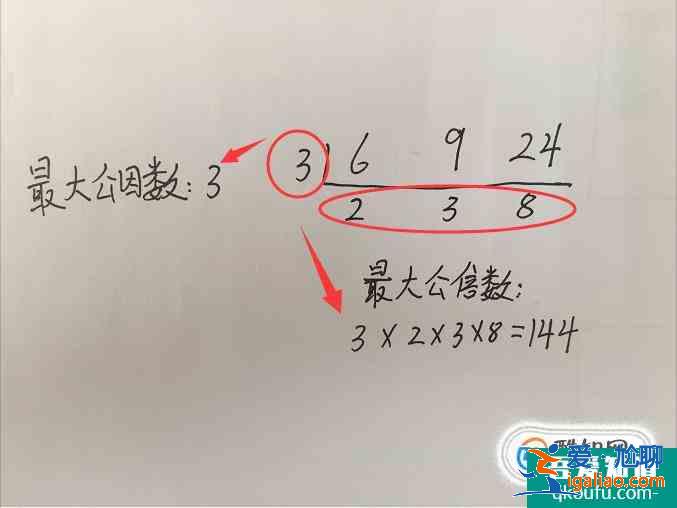 最大公因数:3
3 6 9 24
2 3 8
最大公倍数:
3×2×3×8=144
爱尴聊
igaliao.com
qkoufu.com